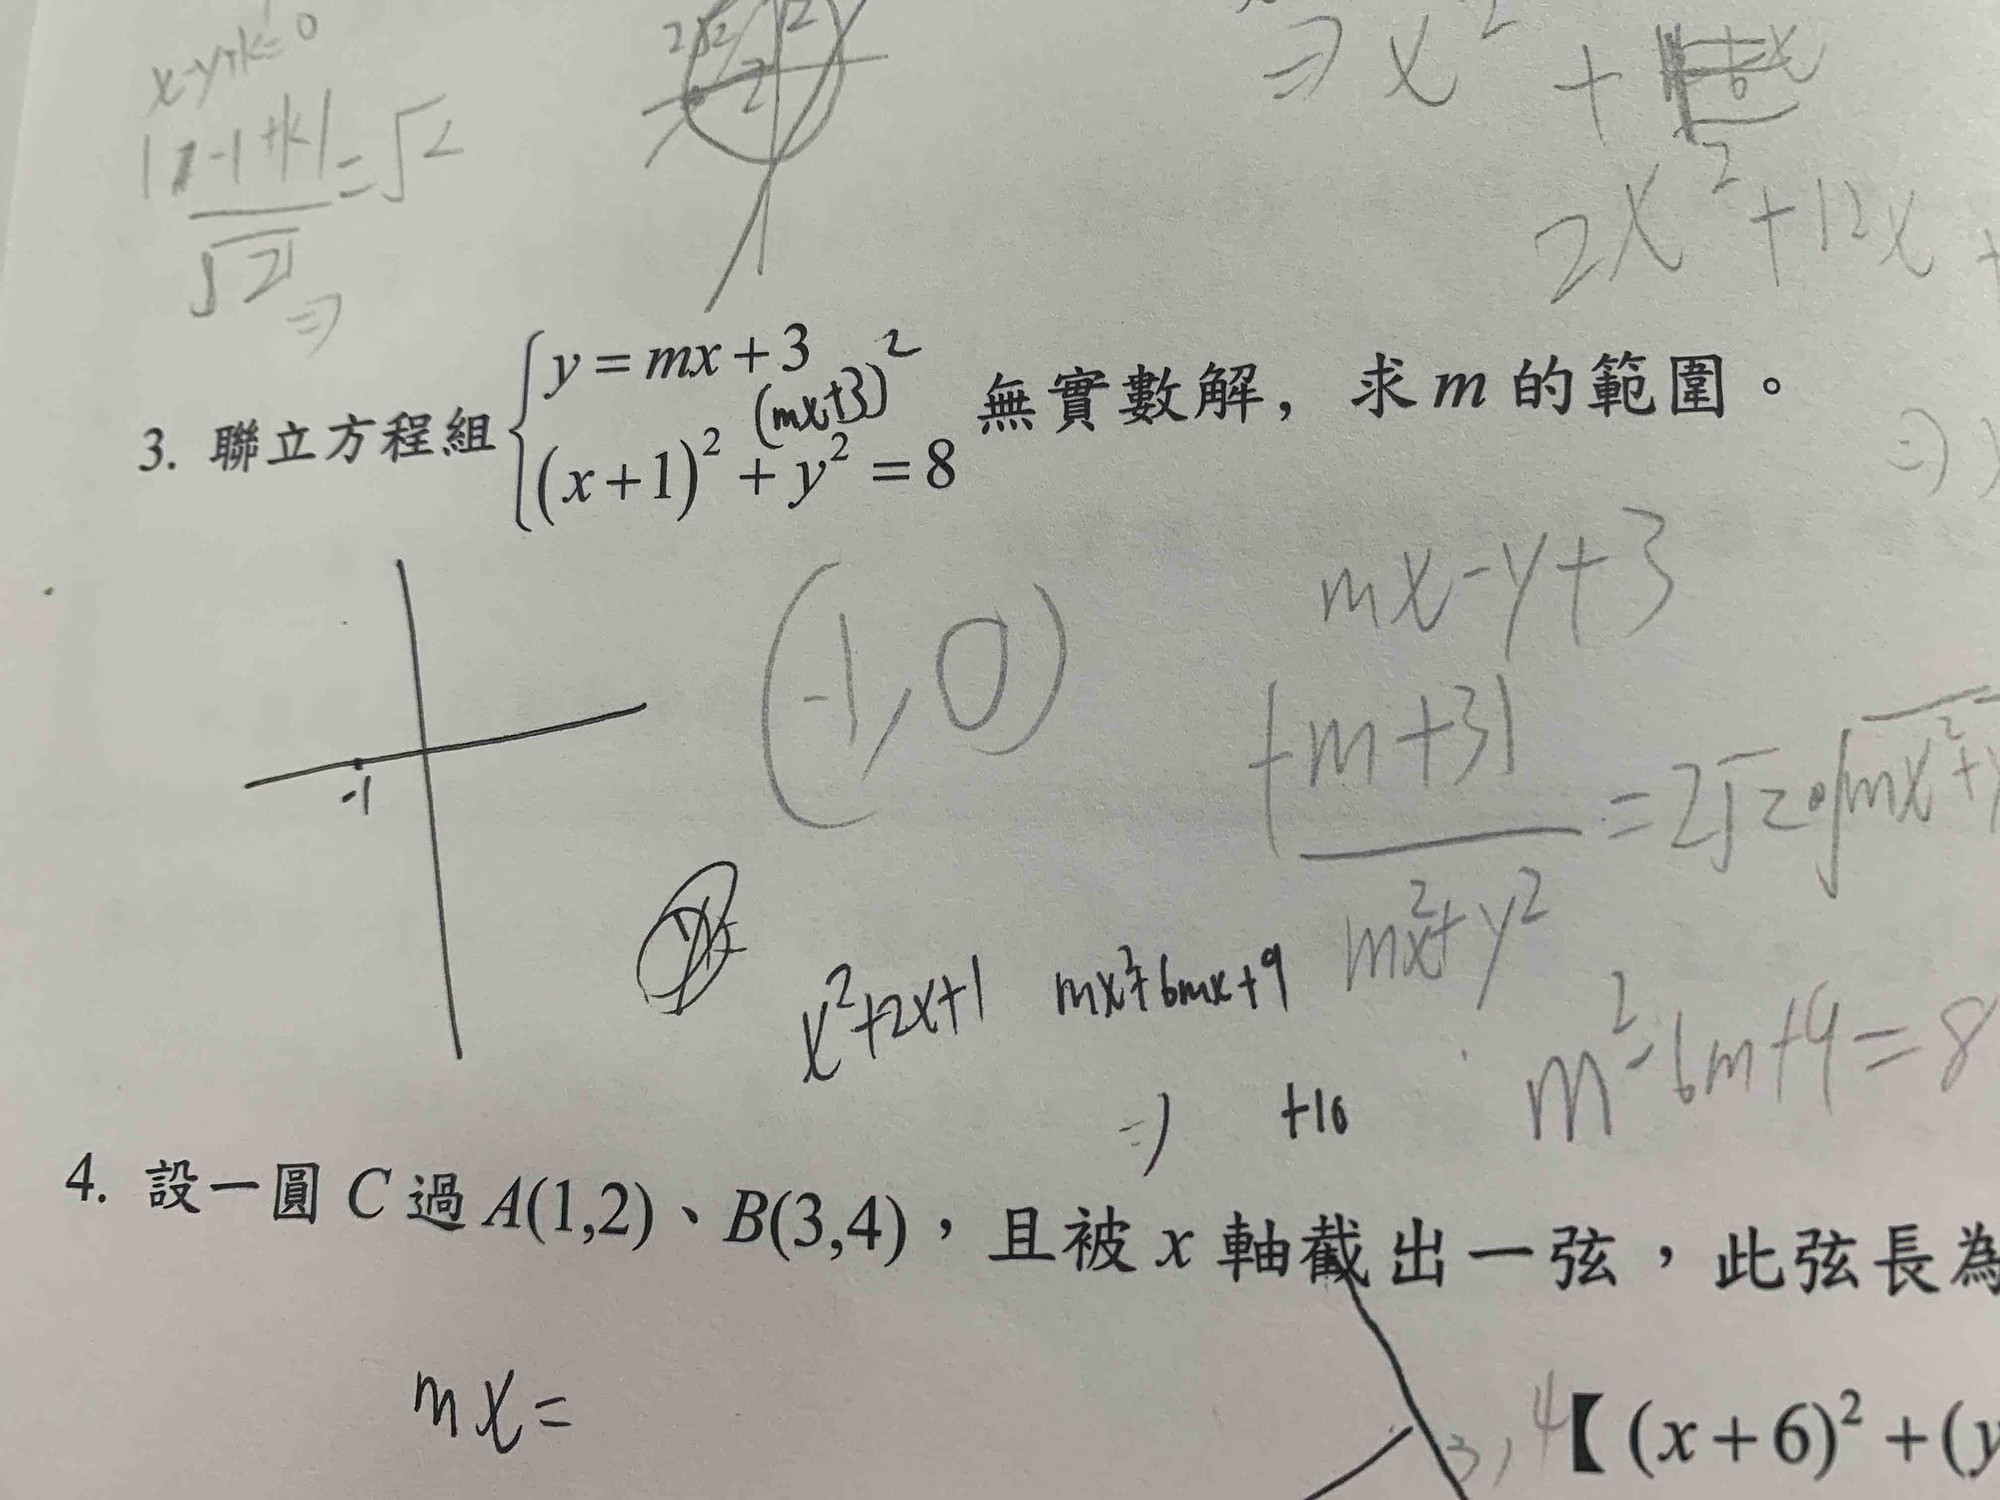 x-y+k=0
|1-1+k|
=√2
√2
⇒
2√2
2
⇒ x² +
2x²+12x +
3. 聯立方程組 { y = mx + 3
(mx+3)²
(x+1)² + y² = 8 無實數解，求 m 的範圍。
⇒
(-1,0)
mx-y+3
-1
|-m+3|
= 2√2 · √mx²+y
mx²+y²
x²+2x+1 mx²+6mx+9
m²-6m+9=8
⇒ +10
4. 設一圓 C 過 A(1,2)、B(3,4)，且被 x 軸截出一弦，此弦長為
mx=
3,4
【(x+6)²+(y